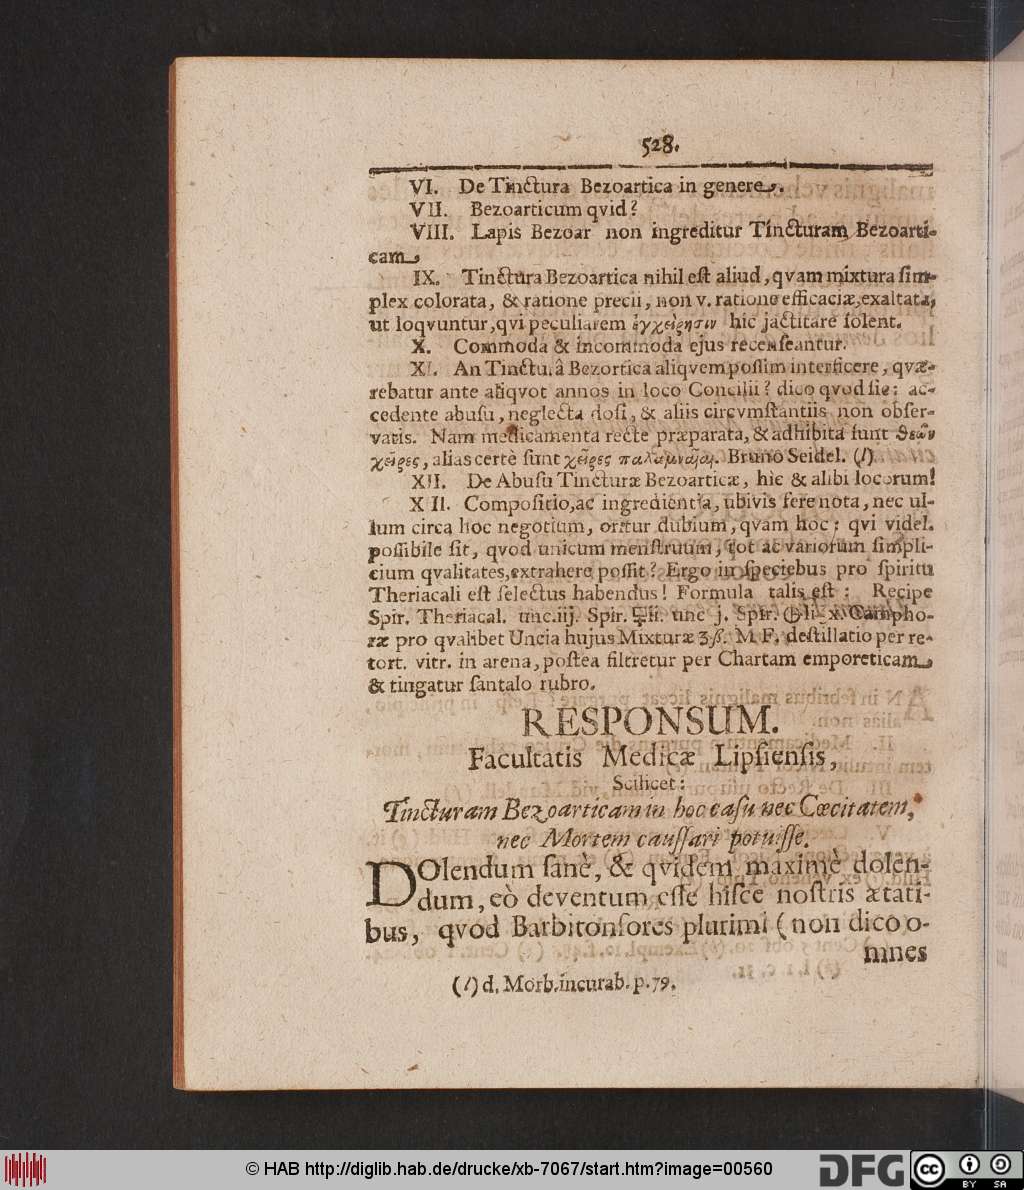 528.
VI. De Tinctura Bezoartica in genere.
VII. Bezoarticum qvid?
VIII. Lapis Bezoar non ingreditur Tincturam Bezoarti-
cam
IX. Tinctura Bezoartica nihil est aliud, qvam mixtura sim-
plex colorata, & ratione precii, non v. ratione efficaciæ, exaltata,
ut loqvuntur, qvi peculiarem ἐγχείρησιν hic jactitare solent.
X. Commoda & incommoda ejus recenseantur.
XI. An Tincturâ Bezortica aliqvem possim interficere, qvæ-
rebatur ante aliqvot annos in loco Concilii? dico qvod sic: ac-
cedente abusu, neglecta dosi, & aliis circvmstantiis non obser-
vatis. Nam medicamenta recte præparata, & adhibita sunt θεῶν
χεῖρες, alias certè sunt χεῖρες παλαμναῖαι. Bruno Seidel. (l)
XII. De Abusu Tincturæ Bezoarticæ, hîc & alibi locorum!
XIII. Compositio, ac ingredientia, ubivis fere nota, nec ul-
lum circa hoc negotium, oritur dubium, qvam hoc: qvi videl.
possibile sit, qvod unicum menstruum, tot ac variorum simpli-
cium qvalitates, extrahere possit? Ergo in speciebus pro spiritu
Theriacali est selectus habendus! Formula talis est: Recipe
Spir. Theriacal. unc. iij. Spir. li. unc j. Spir. li x. Campho-
ræ pro qvalibet Uncia hujus Mixturæ ʒß. M. F. destillatio per re-
tort. vitr. in arena, postea filtretur per Chartam emporeticam
& tingatur santalo rubro.
RESPONSUM.
Facultatis Medicæ Lipsiensis,
Scilicet:
Tincturam Bezoarticam in hoc casu nec Cœcitatem,
nec Mortem caussari potuisse.
DOlendum sanè, & qvidem maximè dolen-
dum, eò deventum esse hisce nostris ætati-
bus, qvod Barbitonsores plurimi (non dico o-
mnes
(l) d. Morb. incurab. p. 79.
© HAB http://diglib.hab.de/drucke/xb-7067/start.htm?image=00560
DFG
cc BY SA